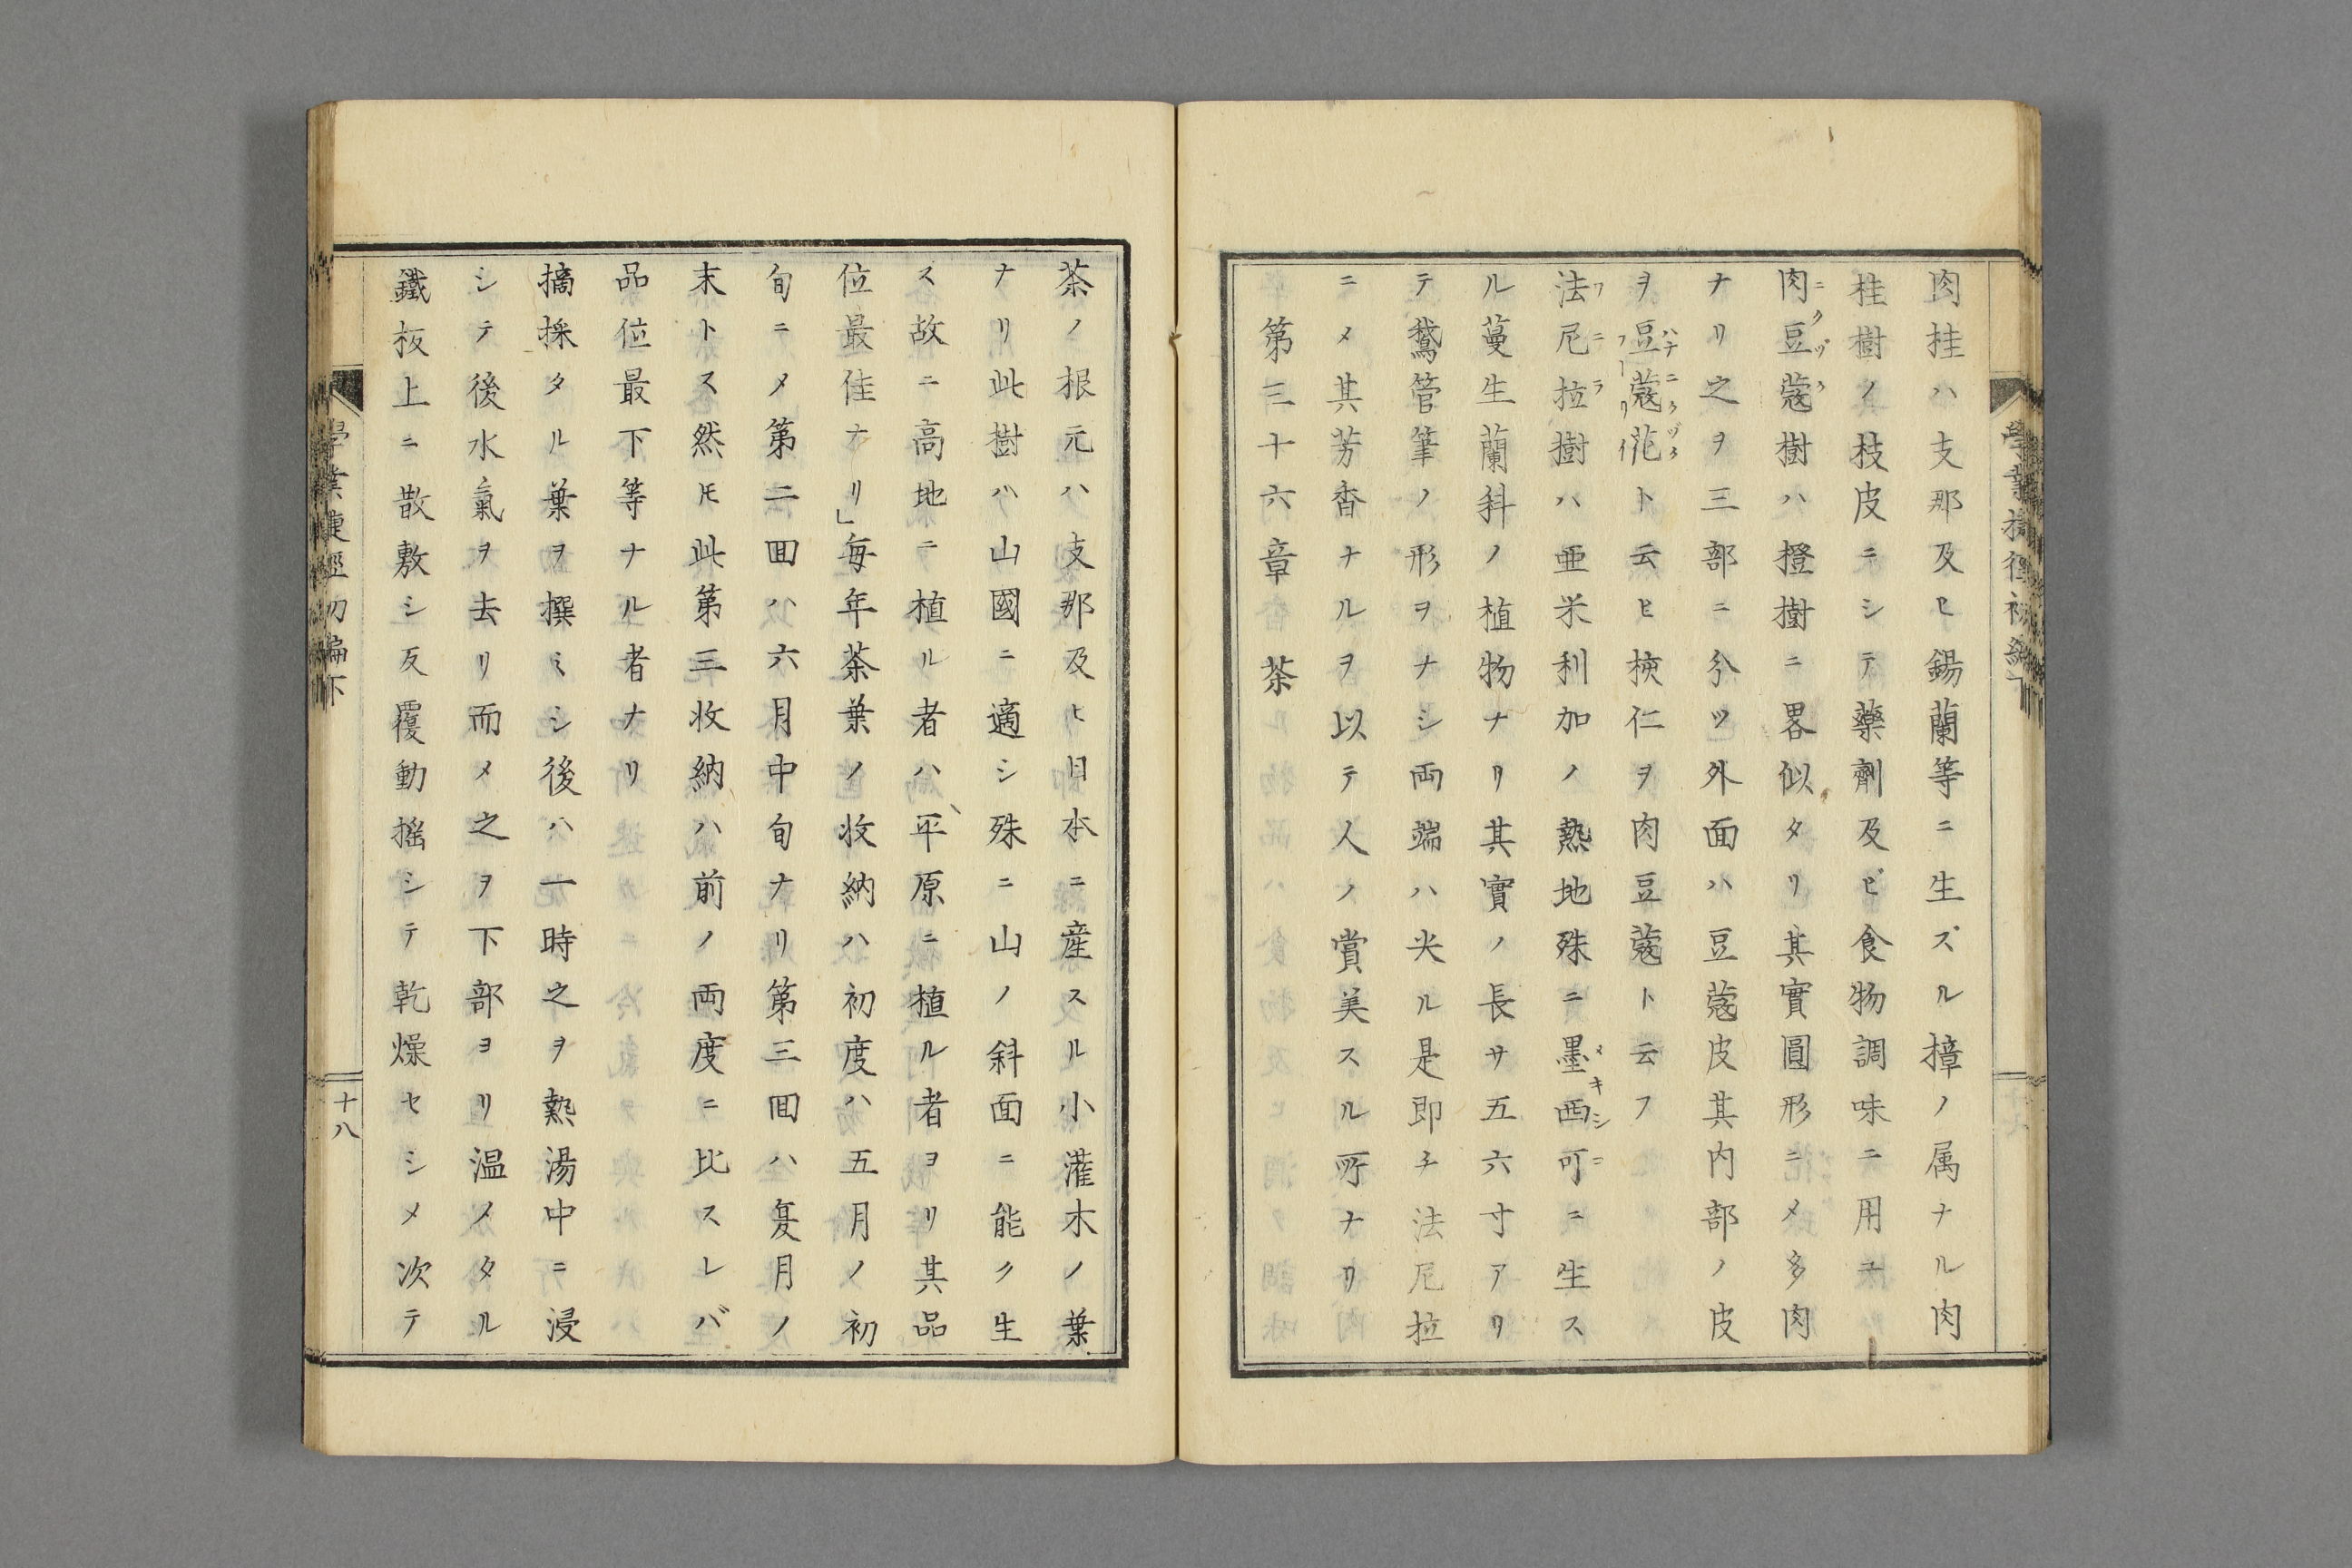 肉桂ハ支那及ヒ錫蘭等ニ生ズル樟ノ属ナル肉
桂樹ノ枝皮ニシテ藥劑及ビ食物調味ニ用ユ
肉豆蔻樹ハ橙樹ニ畧似タリ其實圓形ニメ多肉
ナリ之ヲ三部ニ分ツ外面ハ豆蔻皮其内部ノ皮
ヲ豆蔻花ト云ヒ核仁ヲ肉豆蔻ト云フ
法尼拉樹ハ亜米利加ノ熱地殊ニ墨西可ニ生ス
ル蔓生蘭科ノ植物ナリ其實ノ長サ五六寸アリ
テ鵞管筆ノ形ヲナシ両端ハ尖ル是即チ法尼拉
ニメ其芳香ナルヲ以テ人ノ賞美スル所ナリ
第三十六章 茶
茶ノ根元ハ支那及ヒ日本ニ産スル小灌木ノ葉
ナリ此樹ハ山國ニ適シ殊ニ山ノ斜面ニ能ク生
ス故ニ高地ニ植ル者ハ平原ニ植ル者ヨリ其品
位最佳ナリ」毎年茶葉ノ收納ハ初度ハ五月ノ初
旬ニメ第二回ハ六月中旬ナリ第三回ハ夏月ノ
末トス然㪽此第三收納ハ前ノ両度ニ比スレバ
品位最下等ナル者ナリ
摘採タル葉ヲ撰ミシ後ハ一時之ヲ熱湯中ニ浸
シテ後水氣ヲ去リ而メ之ヲ下部ヨリ温メタル
鐵板上ニ散敷シ反覆動揺シテ乾燥セシメ次テ
學業捷徑初編下
十八